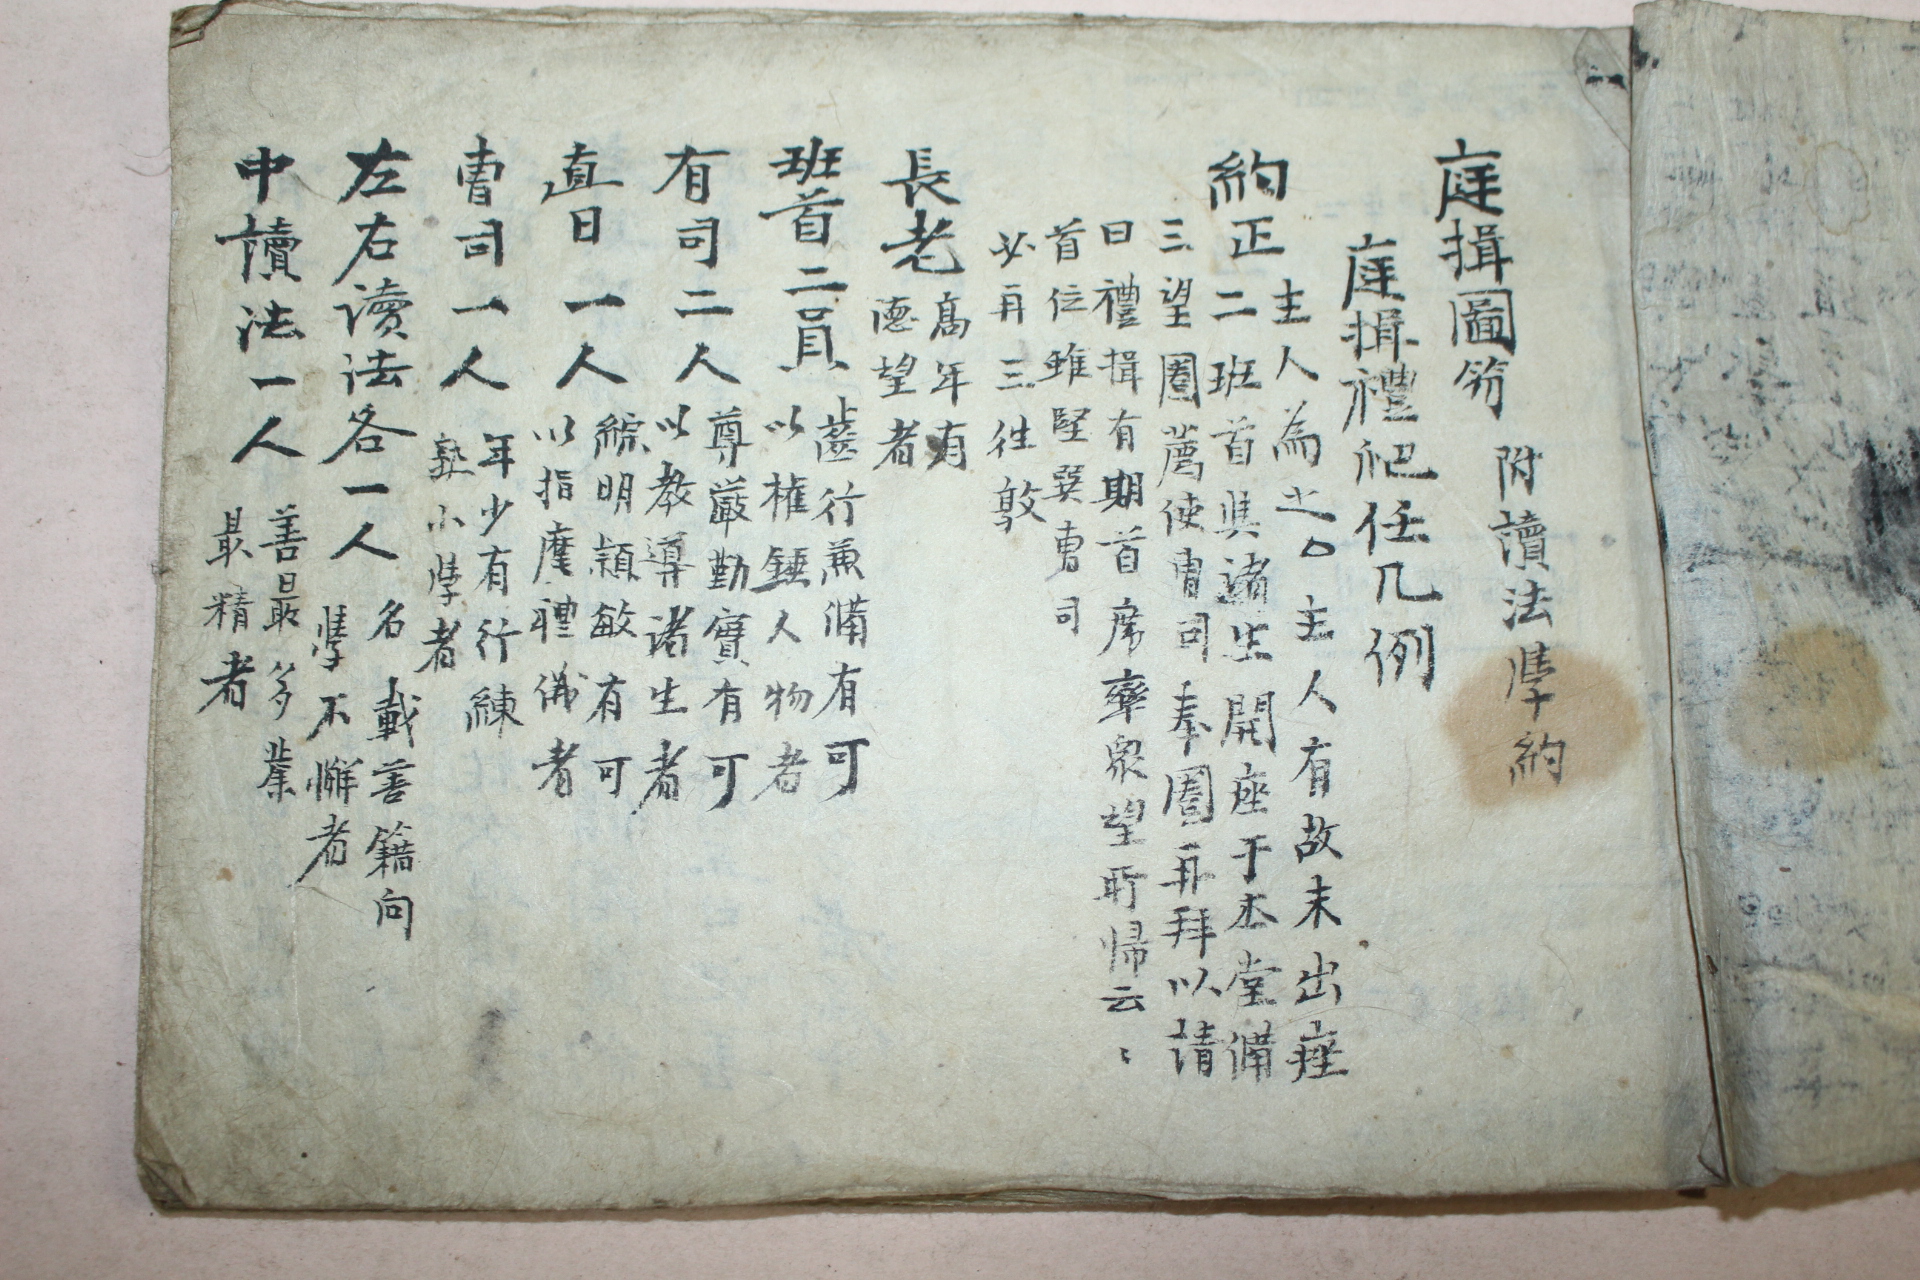 庭揖圖笏 附讀法學約
庭揖禮爬任凡例
約正 主人為之○主人有故未出座
二班首與諸生開座于本堂備
三望圈薦使曺司奉圈再拜以請
曰禮揖有期首席率眾望所帰云〻
首位雖堅巽曺司
必再三徃敦
長老 高年有
德望者
班首二員 齒行兼備有可
以權錘人物者
有司二人 尊嚴勤實有可
以教導諸生者
直日一人 綜明穎敏有可
以指麾禮儀者
曺司一人 年少有行練
熟小學者
左右读法各一人 名載善籍向
學不懈者
中讀法一人 善最多業
最精者